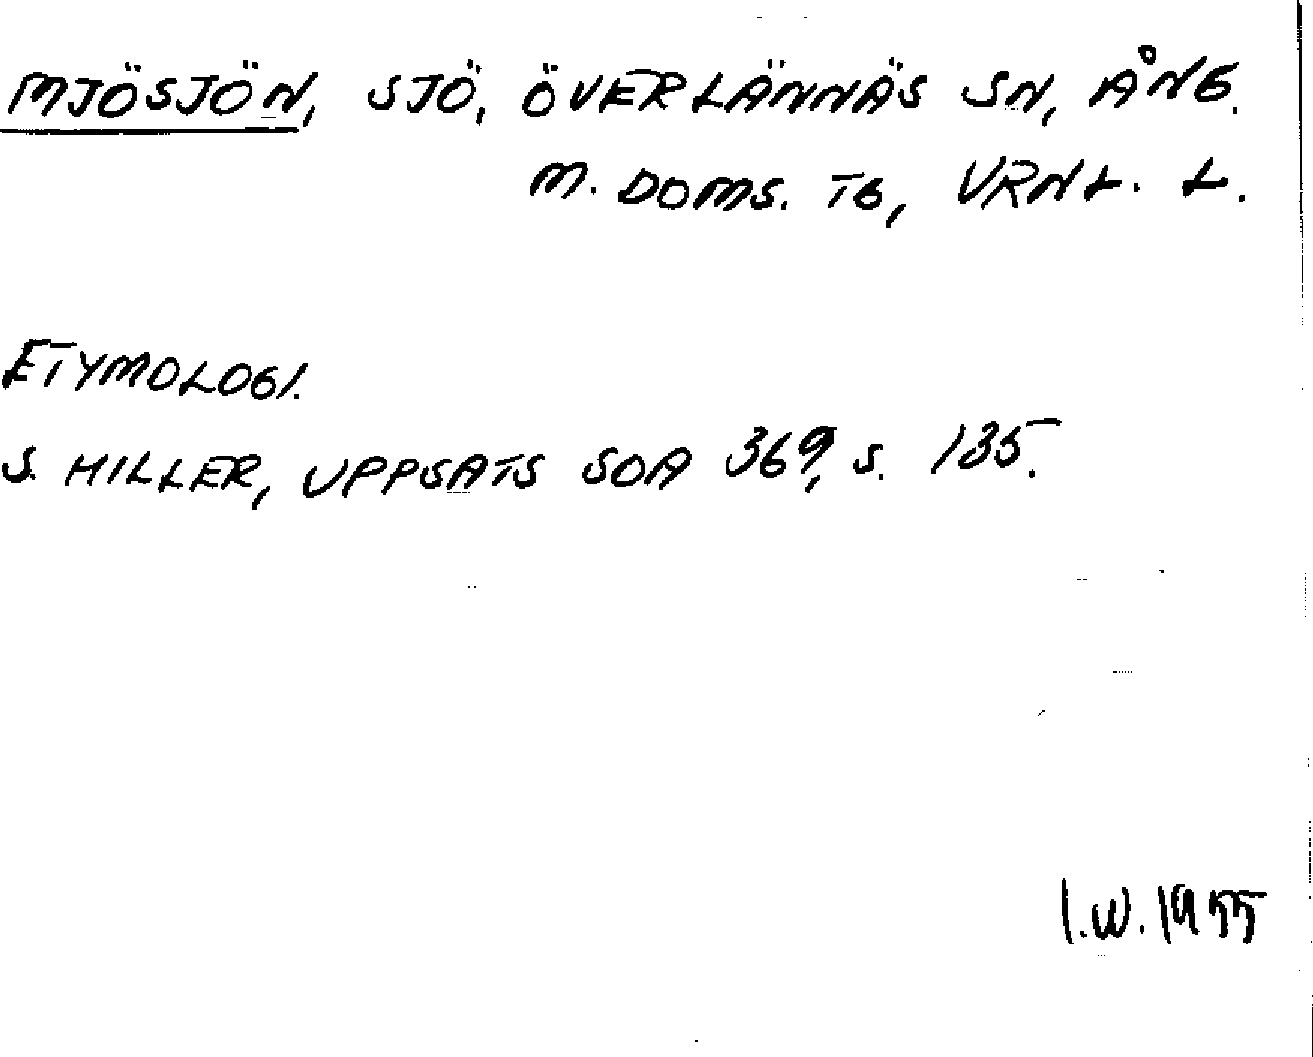 MJÖSJÖN, SJÖ, ÖVERLÄNNÄS SN, ÅNG.
M. DOMS. TG, VRNL. L.
ETYMOLOGI.
S. HILLER, UPPSATS SOA 369, S. 135.
I.W. 1955